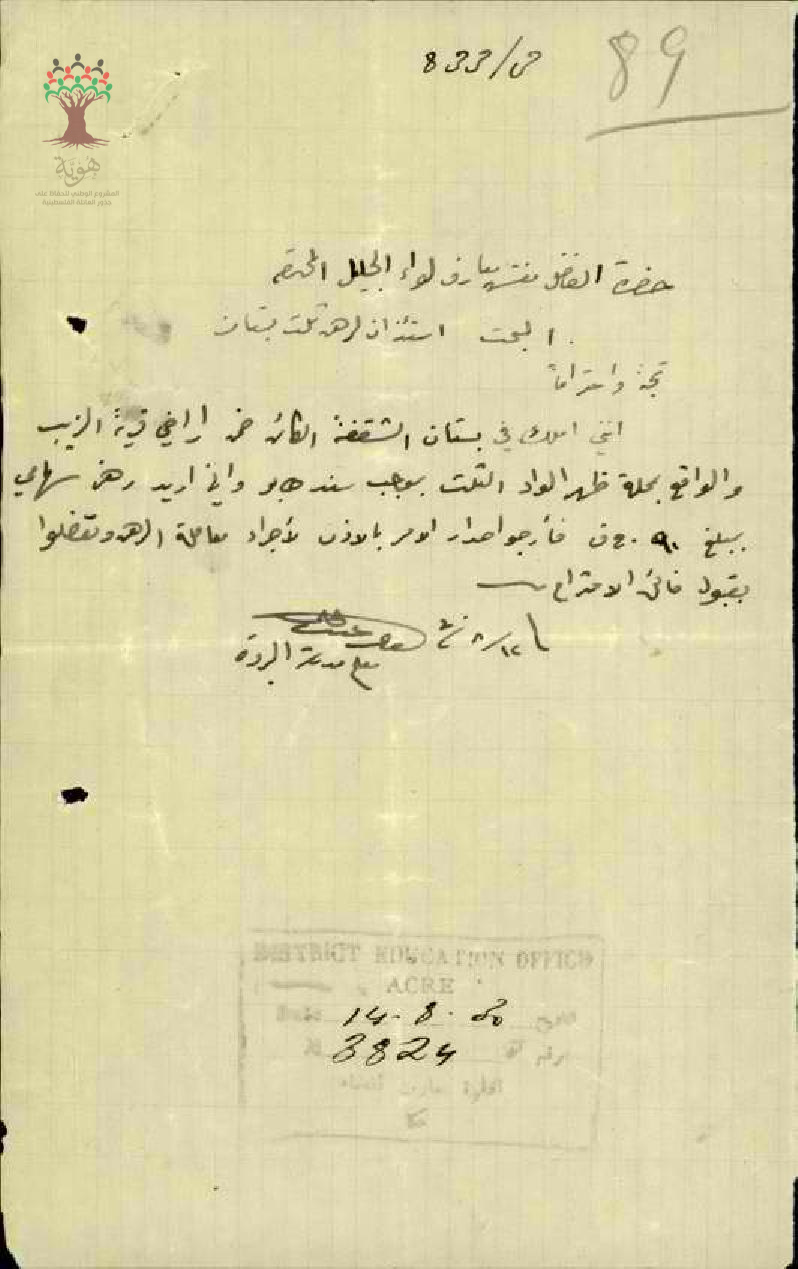 833/م
89
هُوِيَّة
المشروع الوطني للحفاظ على
جذور العائلة الفلسطينية
حضرة الفاضل مفتش معارف لواء الجليل المحترم
البحث استئذان لرهن ثلث بستان
تحية واحتراماً
انني املك في بستان الشقفة الكائن ضمن اراضي قرية الزيب
والواقع بمحلة ظهر الواد الثلث بموجب سند واني اريد رهن سهامي
بمبلغ ٩٠ ج ف فأرجو اصدار الامر بالاذن لأجراء معاملة الرهن وتفضلوا
بقبول فائق الاحترام
١٢/٨
معلم مدرسة البروة
DISTRICT EDUCATION OFFICE
ACRE
Date 14.8. التاريخ
3824